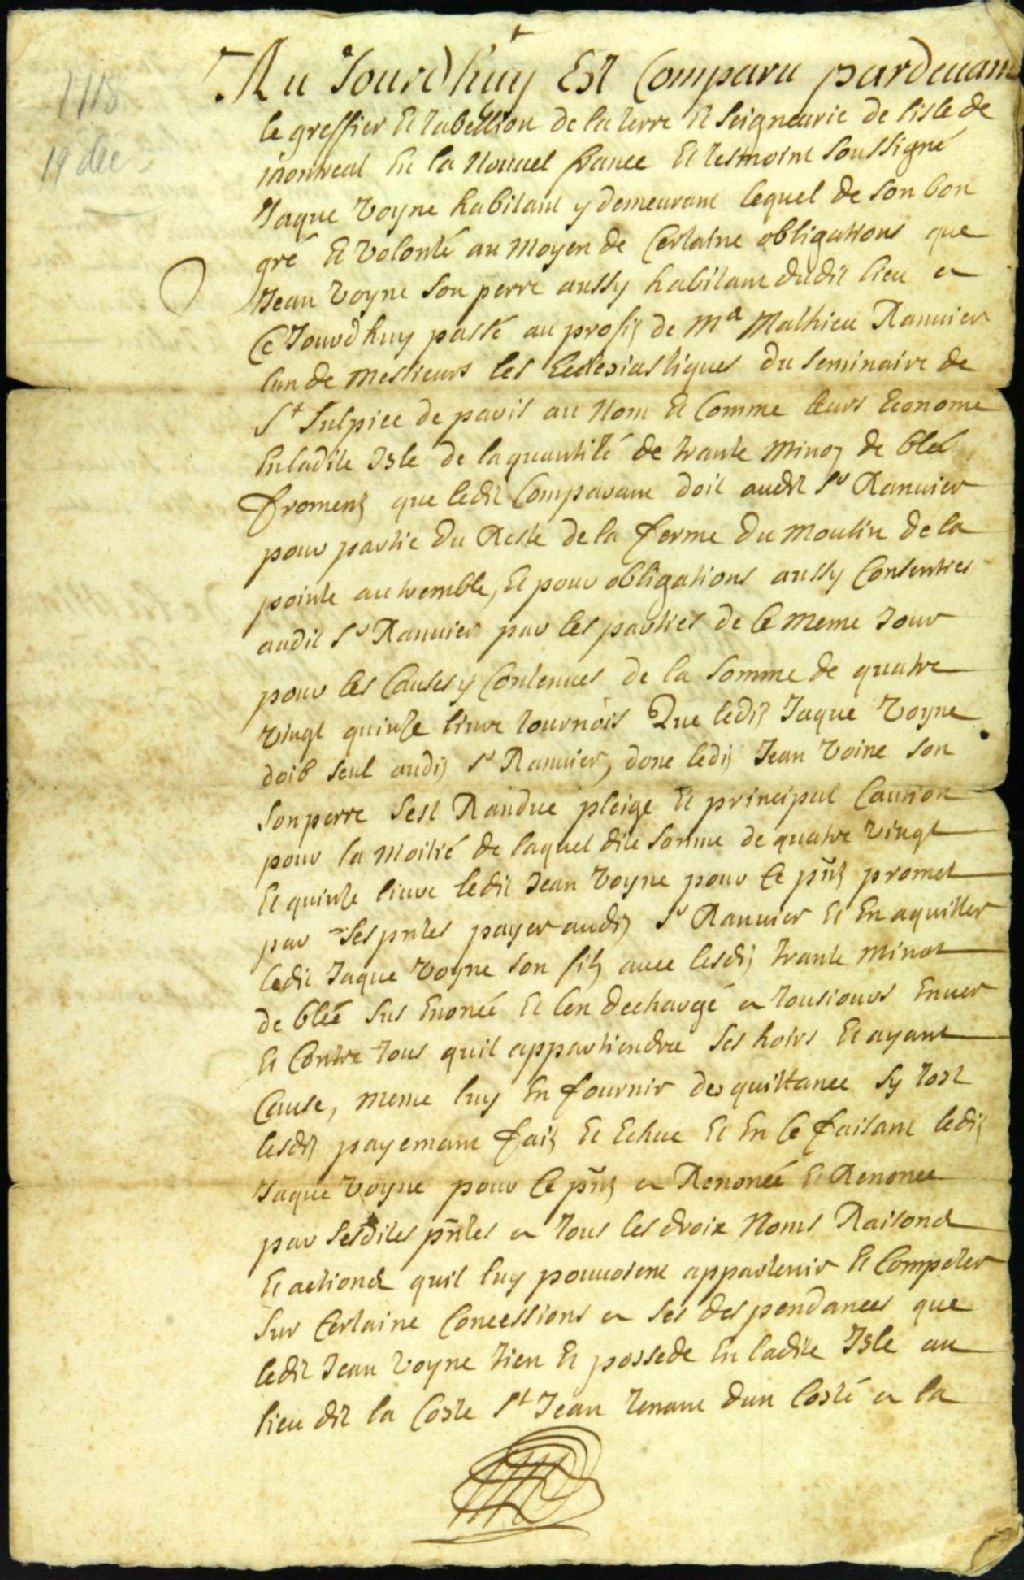 1718
19 dec
Au Jourdhuy Est Comparu pardevant
le greffier Et tabellion de la terre Et Seigneurie de lisle de
montreal En la Nouvel france Et tesmoins Soussigné
Jaque Voyne habitant y demeurant lequel de Son bon
gré Et Volonté au Moyen de Certaine obligations que
Jean Voyne Son perre aussy habitant dudit lieu a
Ce Jourdhuy passé au profit de Mr Mathieu Ranuier
lun de Messieurs les Eclesiastiques du Seminaire de
St Sulpice de paris au Nom Et Comme leurs Econome
En ladite Isle de la quantité de trante Minot de blé
froment que ledit Comparant doit audit Sr Ranuier
pour partie du Reste de la ferme du Moulin de la
pointe au tremble, Et pour obligations aussy Consenties
audit Sr Ranuier par les parties de Ce Meme Jour
pour les Causes y Contenues de la Somme de quatre
Vingt quinse livre tournois Que ledit Jaque Voyne
doib Seul audit Sr Ranuier, donc ledit Jean Voine Son
Son perre Sest Randue pleige Et principal Caution
pour la Moitié de laquel dite Somme de quatre Vingt
Et quinse livre ledit Jean Voyne pour Ce pnt promet
par Ses pntes payer audit Sr Ranuier Et En aquitter
ledit Jaque Voyne Son fils avec lesdit trante Minot
de blée Sus Enoncé Et len dechargé a tousiours Enver
Et Contre tous quil appartiendra Ses hoirs Et ayant
Cause, meme luy En fournir des quittance Sy tost
lesdit payemant fait Et Echue Et En Ce faisant ledit
Jaque Voyne pour Ce pnt a Renoncé Et Renonce
par Sesdites pntes a tous les droix Noms Raisons
Et actions quil luy pouvoient appartenir Et Competer
Sur Certaine Concessions a Ses despendances que
ledit Jean Voyne tien Et possede En ladite Isle au
lieu dit la Coste St Jean tenant dun Costé a la